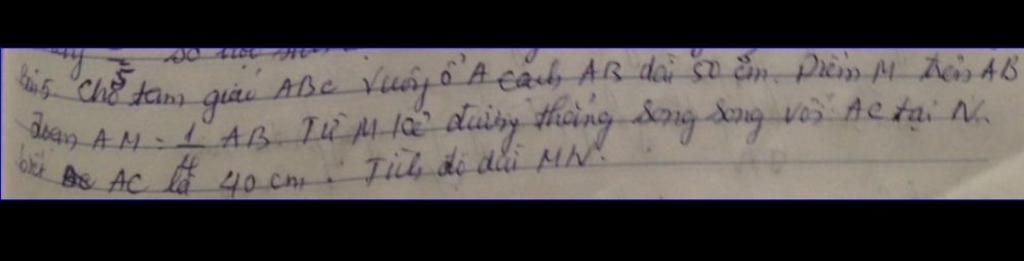 5
Bài 5. Cho tam giác ABC vuông ở A cạnh AB dài 50 cm. Điểm M trên AB
đoạn AM = 1/4 AB. Từ M kẻ đường thẳng song song với AC tại N.
biết AC là 40 cm. Tích độ dài MN.